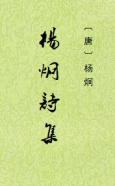 〔唐〕杨炯
楊炯詩集